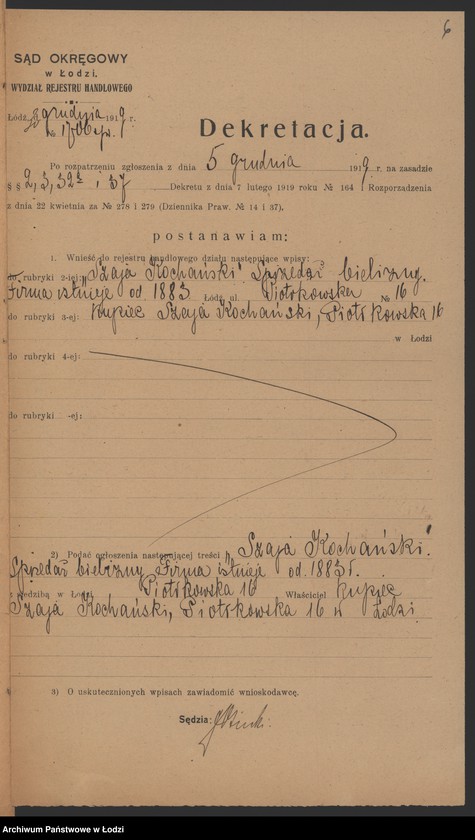 6
SĄD OKRĘGOWY
w Łodzi,
WYDZIAŁ REJESTRU HANDLOWEGO
Łódź, grudnia 1919 r.
№ 1706
Dekretacja.
Po rozpatrzeniu zgłoszenia z dnia 5 grudnia 1919 r. na zasadzie
§ § 2, 3, 32 i 37 Dekretu z dnia 7 lutego 1919 roku № 164 Rozporządzenia
z dnia 22 kwietnia za № 278 i 279 (Dziennika Praw. № 14 i 37).
postanawiam:
1. Wnieść do rejestru handlowego działu następujące wpisy:
do rubryki 2-iej: „Szaja Kochański" Sprzedaż bielizny.
Firma istnieje od 1883 Łódź, ul. Piotrkowska № 16
do rubryki 3-ej: Kupiec Szaja Kochański, Piotrkowska 16
w Łodzi
do rubryki 4-ej:
do rubryki -ej:
2) Podać ogłoszenia następującej treści „Szaja Kochański".
Sprzedaż bielizny Firma istnieje od 1883 r.
z siedzibą w Łodzi Piotrkowska 16 Właściciel Kupiec
Szaja Kochański, Piotrkowska 16 w Łodzi
3) O uskutecznionych wpisach zawiadomić wnioskodawcę.
Sędzia:
Archiwum Państwowe w Łodzi